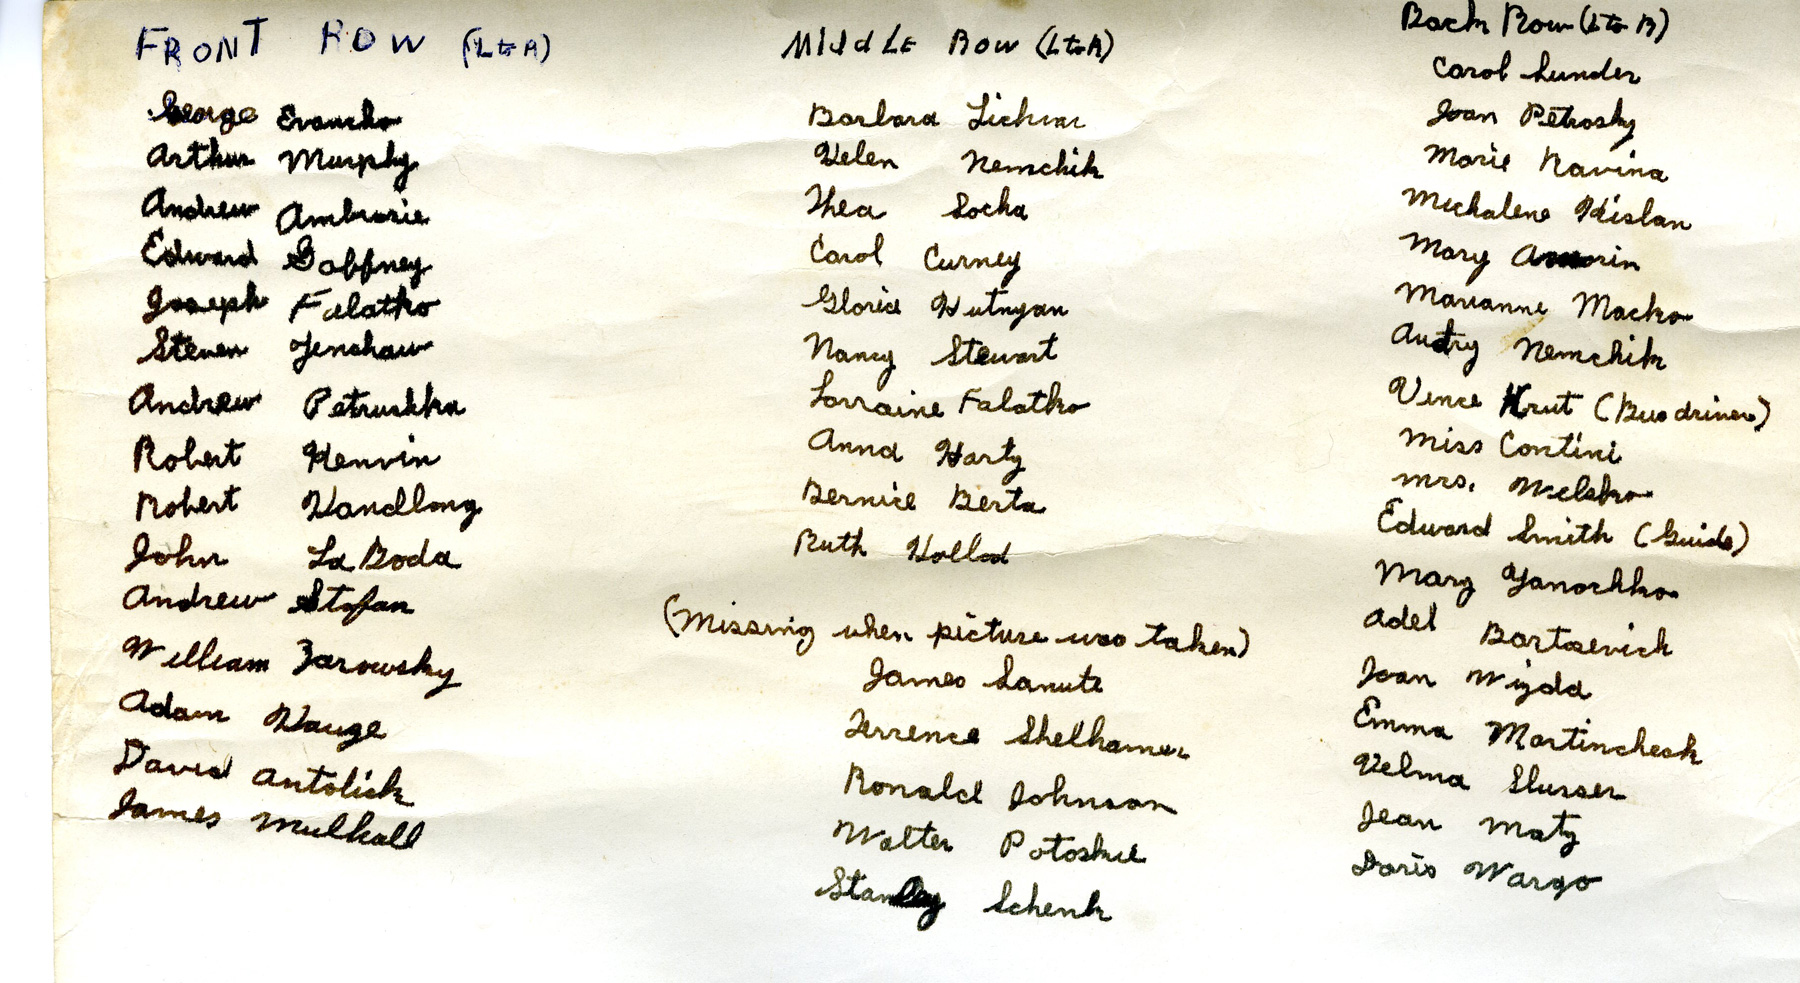 FRONT ROW (L to R)
George Evancho
Arthur Murphy
Andrew Ambrosie
Edward Gaffney
Joseph Falatko
Steven Yenchaw
Andrew Petrushka
Robert Kenvin
Robert Handlong
John La Boda
Andrew Stofan
William Zarowsky
Adam Hauze
David Antolick
James Mulhall
MIddLE Row (L to R)
Barbara Lichvar
Helen Nemchik
Thea Socha
Carol Curney
Gloria Hutnyan
Nancy Stewart
Lorraine Falatko
Anna Harty
Bernice Berta
Ruth Hollod
(Missing when picture was taken)
James Sanute
Terrence Shelhamer
Ronald Johnson
Walter Potoskie
Stanley Schenk
Back Row (L to R)
Carol Lunder
Joan Petrosky
Marie Navina
Michalene Kislan
Mary
Marianne Macko
Audry Nemchik
Vince Hrut (Bus driver)
Miss Contini
Mrs.
Edward Smith (Guide)
Mary Yanochko
Adel Bartsevich
Joan Wijda
Emma Martincheck
Velma Slusser
Jean Matz
Doris Wargo